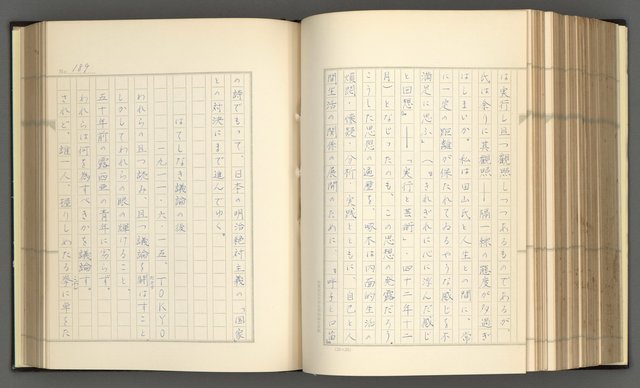 は実行し且つ観照しつつあるものであるが、
氏は余りに其観照――隔一線の態度が勺過ぎ
はしまいか。私は田山氏と人生との間に、常
に一定の距離が保たれてゐるやうな感じを不
満足に思ふ」（「きれぎれに心に浮んだ感じ
と回想」――「実行と芸術」・四十二年十二
月）となじったのも、この思想の発露だろう。
こうした思想の遍歴を、啄木は内面的生活の
煩悶・懐疑・分析・実践とともに、自己と人
間生活の関係の展開のために、「呼子と口笛」
No. 189
の詩でもって、日本の明治絶対主義の「国家」
との対決にまで進んでゆく。
はてしなき議論の後
一九一一・六・一五・TOKYO
われらの且つ読み、且つ議論を闘はすこと
しかしてわれらの眼の輝けること
五十年前の露西亜の青年に劣らず。
われらは何を為すべきかを議論す。
されど、誰一人、握りしめたる拳に卓をた